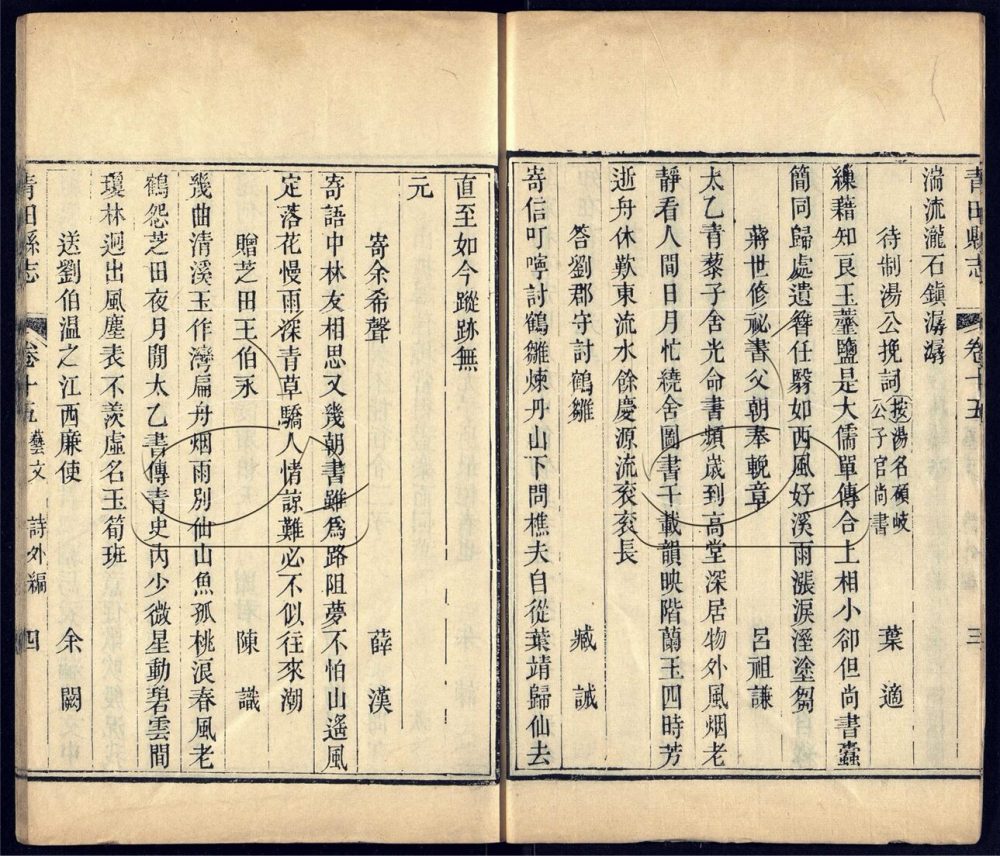 青田縣志 卷十五 三
湍流瀧石鎮潺潺
待制湯公挽詞 按湯名碩岐公子官尚書 葉適
繅藉知良玉虀鹽是大儒單傳合上相小卻但尚書蠹
簡同歸處遺簪任翳如西風好溪雨漲淚溼塗芻
蔣世修祕書父朝奉輓章 呂祖謙
太乙青藜子舍光命書頻歲到高堂深居物外風烟老
靜看人間日月忙繞舍圖書千載韻映階蘭玉四時芳
逝舟休歎東流水餘慶源流袞袞長
答劉郡守討鶴雛 臧誠
寄信叮嚀討鶴雛煉丹山下問樵夫自從葉靖歸仙去
直至如今蹤跡無
元
寄余希聲 薛漢
寄語中林友相思又幾朝書雖爲路阻夢不怕山遙風
定落花慢雨深青草驕人情諒難必不似往來潮
贈芝田王伯永 陳識
幾曲清溪玉作灣扁舟烟雨別仙山魚孤桃浪春風老
鶴怨芝田夜月閒太乙書傳青史內少微星動碧雲間
瓊林迥出風塵表不羨虛名玉筍班
送劉伯溫之江西廉使 余闕
青田縣志 卷十五 藝文 詩外編 四